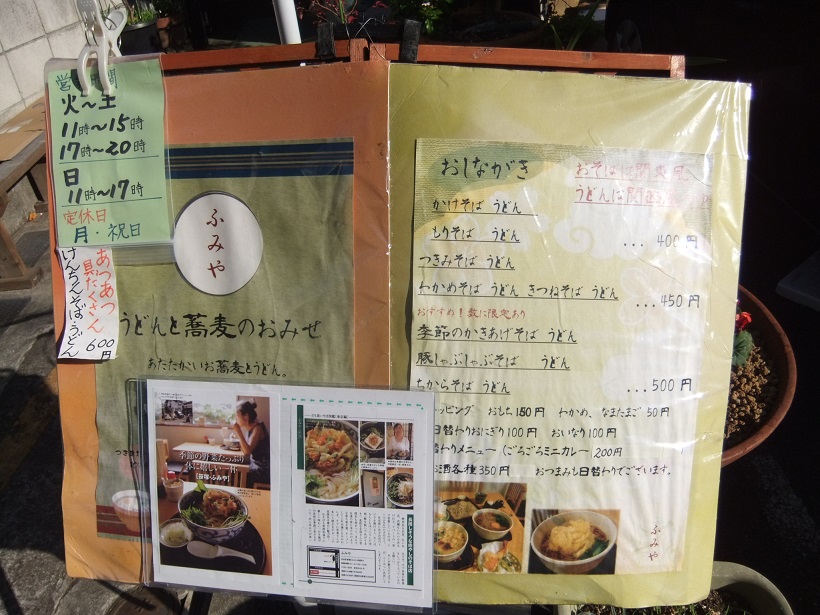 営業時間
火～土
11時～15時
17時～20時
日
11時～17時
定休日
月・祝日
あつあつ
具だくさん
けんちんそば・うどん
600円
ふみや
うどんと蕎麦のおみせ
あたたかいお蕎麦とうどん。
季節の野菜たっぷり
体に嬉しい一杯
ふみや
おしながき
おそばは関東風
うどんは関西
かけそば うどん
もりそば うどん ... 400円
つきみそば うどん
わかめそば うどん きつねそば うどん ... 450円
おすすめ！数に限定あり
季節のかきあげそば うどん
豚しゃぶしゃぶそば うどん
ちからそば うどん ... 500円
トッピング おもち 150円 わかめ、なまたまご 50円
日替わりおにぎり 100円 おいなり 100円
替わりメニュー (ごろごろミニカレー) 200円
酒各種 350円 おつまみも日替わりでございます。
ふみや